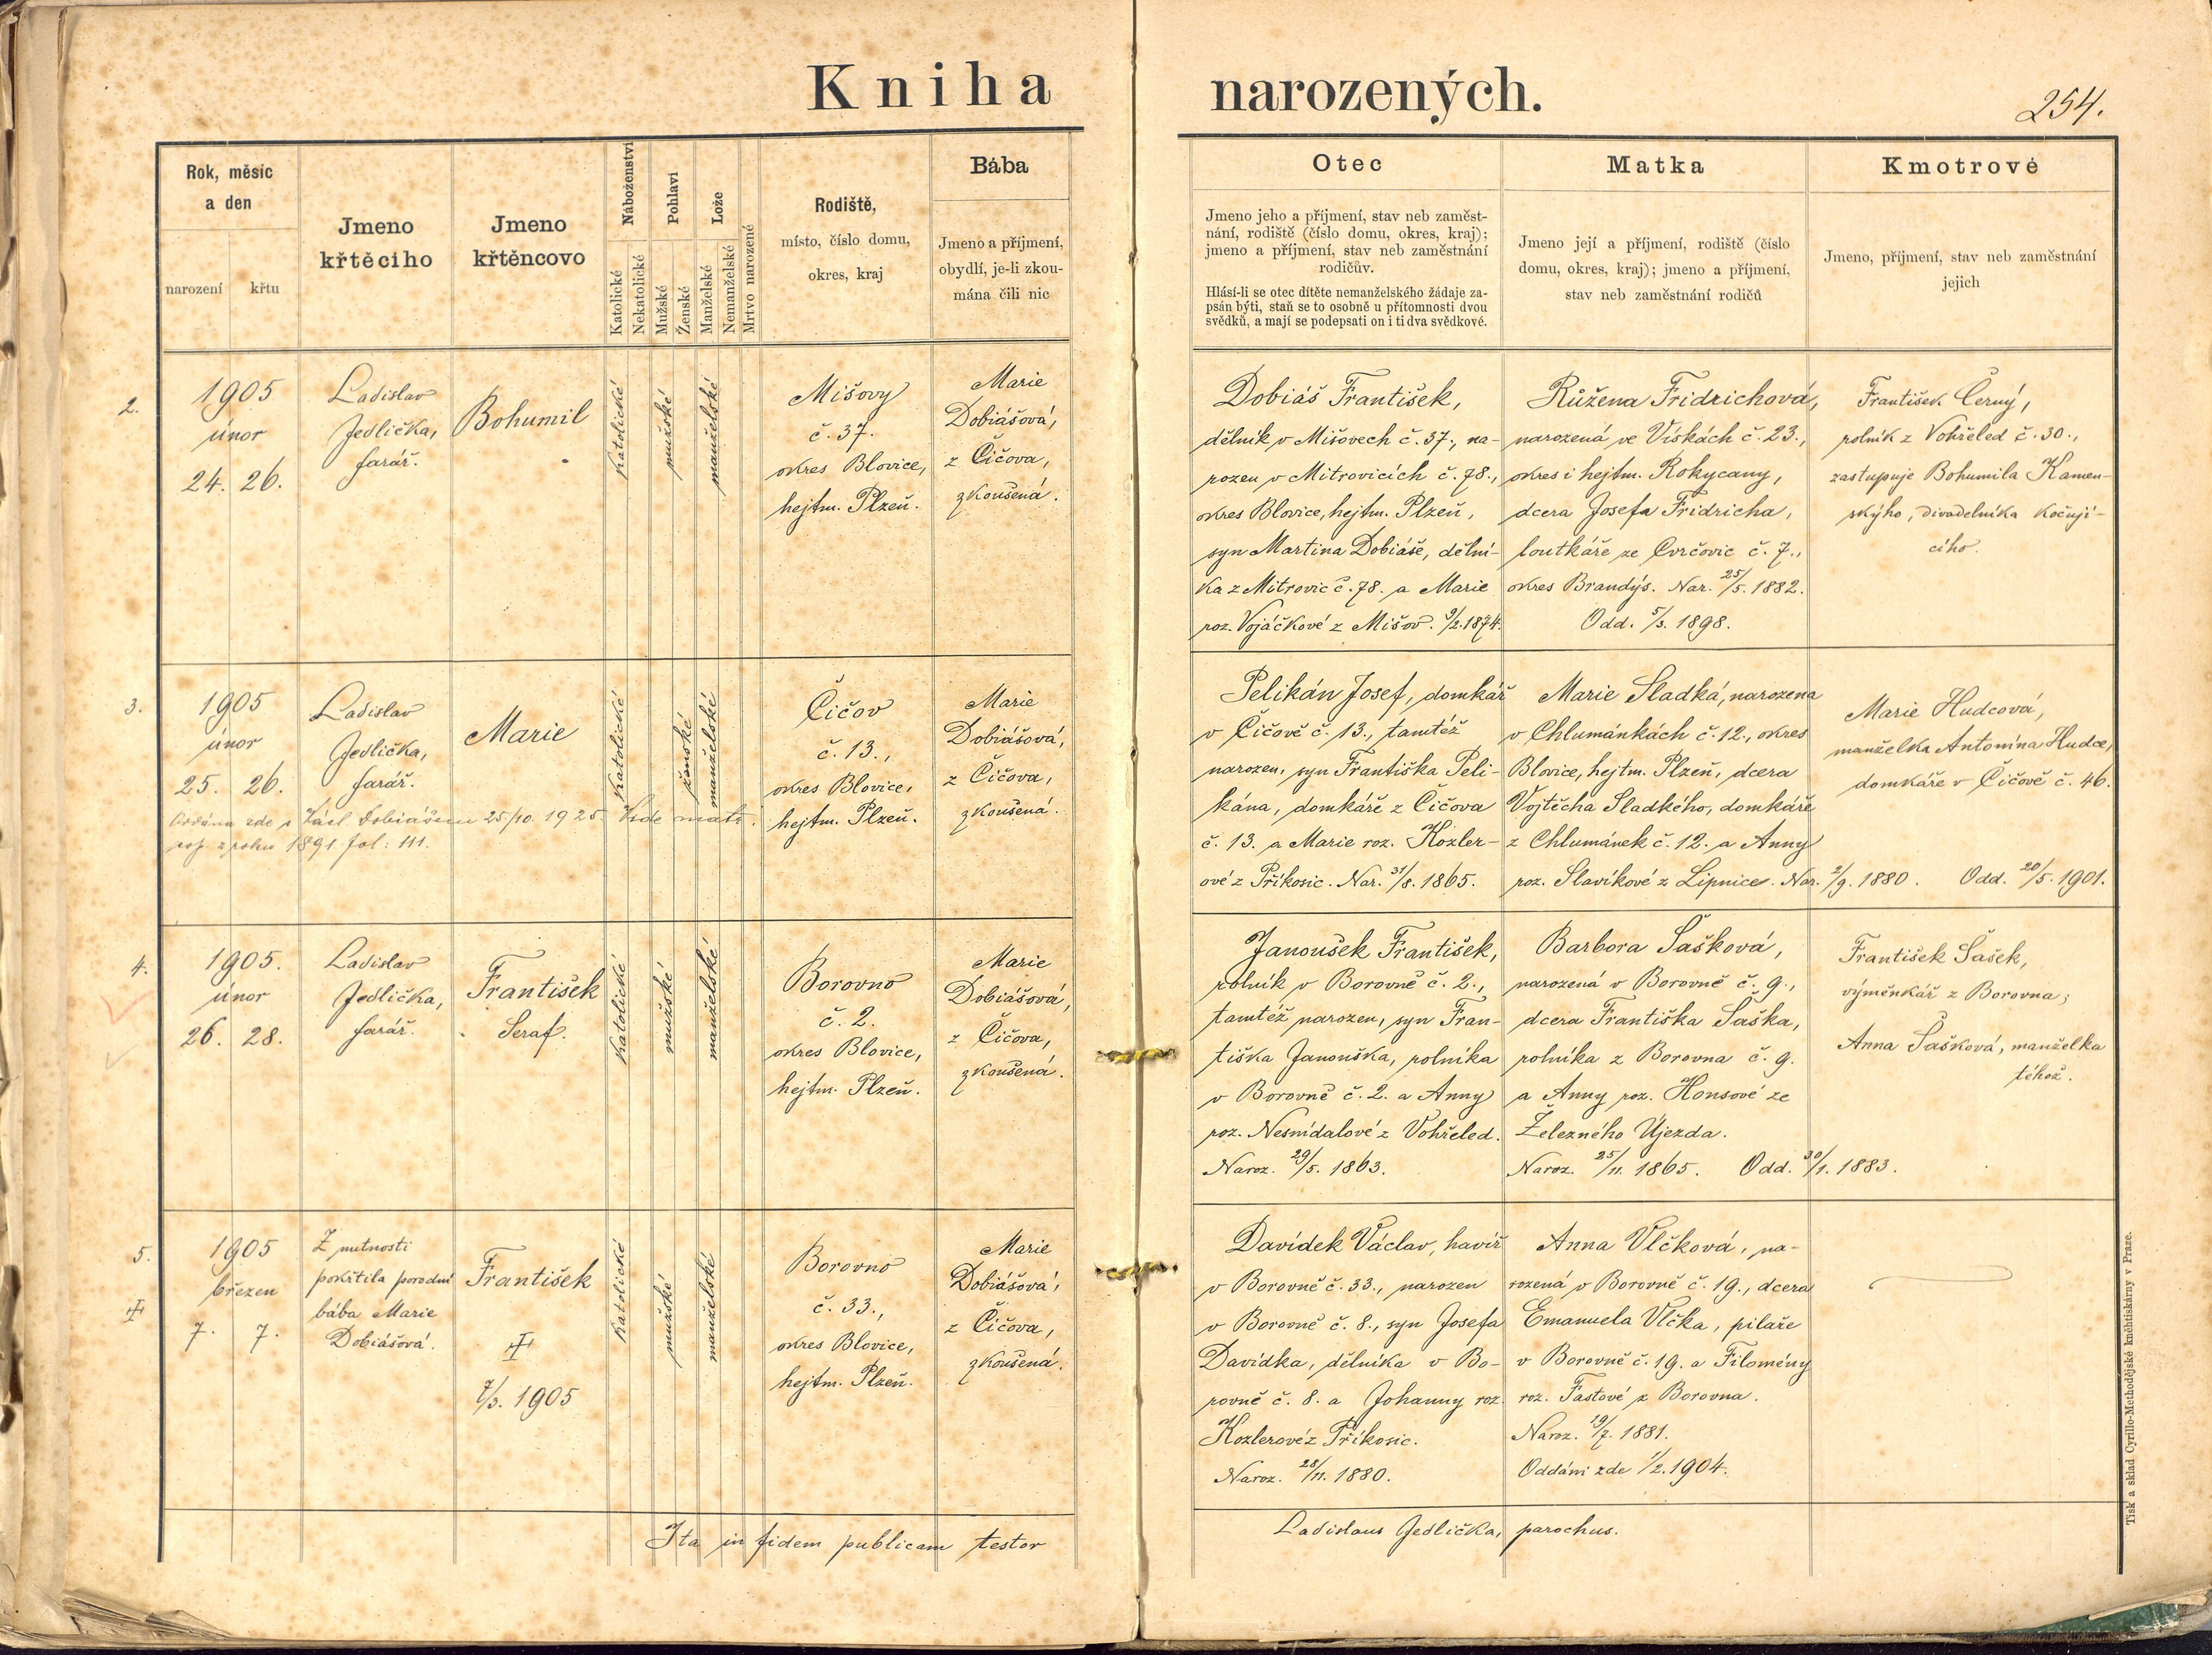 Kniha narozených.
254.
Rok, měsíc
a den
narození
křtu
Jmeno
křtěcího
Jmeno
křtěncovo
Náboženství
Katolické
Nekatolické
Pohlaví
Mužské
Ženské
Lože
Manželské
Nemanželské
Mrtvo narozené
Rodiště,
místo, číslo domu,
okres, kraj
Bába
Jmeno a příjmení,
obydlí, je-li zkou-
mána čili nic
Otec
Jmeno jeho a příjmení, stav neb zaměst-
nání, rodiště (číslo domu, okres, kraj);
jmeno a příjmení, stav neb zaměstnání
rodičův.
Hlásí-li se otec dítěte nemanželského žádaje za-
psán býti, staň se to osobně u přítomnosti dvou
svědků, a mají se podepsati on i ti dva svědkové.
Matka
Jmeno její a příjmení, rodiště (číslo
domu, okres, kraj); jmeno a příjmení,
stav neb zaměstnání rodičů
Kmotrové
Jmeno, příjmení, stav neb zaměstnání
jejich
2.
1905
únor
24. 26.
Ladislav
Jedlička,
farář.
Bohumil
katolické
mužské
manželské
Mišovy
č. 37.
okres Blovice,
hejtm. Plzeň.
Marie
Dobiášová,
z Čičova,
zkoušená.
Dobiáš František,
dělník v Mišovech č. 37., na-
rozen v Mitrovicích č. 78.,
okres Blovice, hejtm. Plzeň,
syn Martina Dobiáše, dělní-
ka z Mitrovic č. 78. a Marie
roz. Vojáčkové z Mišov. 9/2. 1874.
Růžena Fridrichová,
narozená ve Vískách č. 23.,
okres i hejtm. Rokycany,
dcera Josefa Fridricha,
loutkáře ze Cvrčovic č. 7.,
okres Brandýs. Nar. 25/5. 1882.
Odd. 5/3. 1898.
František Černý,
rolník z Vohřeled č. 30.,
zastupuje Bohumila Kamen-
ského, divadelníka kočují-
cího.
3.
1905
únor
25. 26.
Ladislav
Jedlička,
farář.
Marie
katolické
ženské
manželské
Oddána zde s Václ. Dobiášem 25/10. 1925. Vide matr.
pag. z roku 1891. fol: 111.
Čičov
č. 13.,
okres Blovice,
hejtm. Plzeň.
Marie
Dobiášová,
z Čičova,
zkoušená.
Pelikán Josef, domkář
v Čičově č. 13., tamtéž
narozen, syn Františka Peli-
kána, domkáře z Čičova
č. 13. a Marie roz. Kozler-
ové z Příkosic. Nar. 31/8. 1865.
Marie Sladká, narozena
v Chlumánkách č. 12., okres
Blovice, hejtm. Plzeň, dcera
Vojtěcha Sladkého, domkáře
z Chlumánek č. 12. a Anny
roz. Slavíkové z Lipnice. Nar. 2/9. 1880. Odd. 20/5. 1901.
Marie Hudcová,
manželka Antonína Hudce,
domkáře v Čičově č. 46.
4.
1905.
únor
26. 28.
Ladislav
Jedlička,
farář.
František
Seraf.
katolické
mužské
manželské
Borovno
č. 2.
okres Blovice,
hejtm. Plzeň.
Marie
Dobiášová,
z Čičova,
zkoušená.
Janoušek František,
rolník v Borovně č. 2.,
tamtéž narozen, syn Fran-
tiška Janouška, rolníka
v Borovně č. 2. a Anny
roz. Nesnídalové z Vohřeled.
Naroz. 29/5. 1863.
Barbora Šašková,
narozená v Borovně č. 9.,
dcera Františka Šaška,
rolníka z Borovna č. 9.
a Anny roz. Honsové ze
Železného Újezda.
Naroz. 25/11. 1865. Odd. 30/1. 1883.
František Šašek,
výměnkář z Borovna;
Anna Šašková, manželka
téhož.
5.
1905
březen
7. 7.
Z nutnosti
pokřtila porodní
bába Marie
Dobiášová.
František
7/3. 1905
katolické
mužské
manželské
Borovno
č. 33.,
okres Blovice,
hejtm. Plzeň.
Marie
Dobiášová,
z Čičova,
zkoušená.
Davídek Václav, havíř
v Borovně č. 33., narozen
v Borovně č. 8., syn Josefa
Davídka, dělníka v Bo-
rovně č. 8. a Johanny roz.
Kozlerové z Příkosic.
Naroz. 28/11. 1880.
Anna Vlčková, na-
rozená v Borovně č. 19., dcera
Emanuela Vlčka, pilaře
v Borovně č. 19. a Filomény
roz. Fastové z Borovna.
Naroz. 19/7. 1881.
Oddáni zde 1/2. 1904.
Ita in fidem publicam testor
Ladislaus Jedlička, parochus.
Tisk a sklad Cyrillo-Methodějské knihtiskárny v Praze.